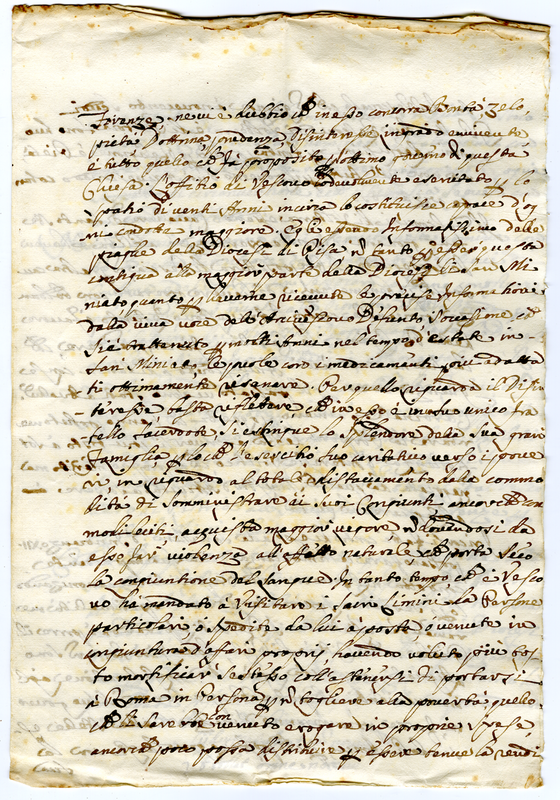 Firenze, ne v'è dubbio ch' in esso concorra bontà, zelo
pietà, Dottrina, prudenza, Disinteresse in grado eminente
e tutto quello ch' è di proposito p l'ottimo governo di questa
Chiesa. L'offitio di Vescovo lodevolmente esercitato p lo
spatio di venti Anni in circa lo costituisce capace d'og
ni condotta maggiore. Egli essendo Informatissimo delle
piaghe della Diocesi di Pisa sì tanto p esser questa
contigua alla maggior parte della Diocesi di San Mi
niato, quanto p haverne ricevute le precise Informationi
dalla viva voce dell'Arcivescovo Defunto, soccasione ch'
si è trattenuto p molti Anni nel tempo d'estate in
San Miniato, le puole con i medicamenti più adatta
ti ottimamente risanare. Per quello riguarda il Disin
teresse basta riflettere ch' in esso è in suo unico fra
tello sacerdote, si estingue lo splendore della sua gran
famiglia, p lo ch' l'esercitio suo caritativo verso i pove
ri, in riguardo al totale distaccamento dalla commo
dità di somministrare ai suoi Congiunti ancorch' con
modi leciti, acquista maggior vigore, n dovendosi da
esso far violenza all'affetto naturale, ch' porta seco
la congiuntione del sangue. In tanto tempo ch' è Vesco
vo ha mandato à Visitare i sacri Limini da Persone
particolari, ò spedite da lui à posta, ò venute in
congiuntura d'affari proprij, havendo voluto più tos
to mortificar se stesso coll'astenersi di portarsi
à Roma in Persona p n togliere alla povertà quello,
ch' li sarebbe convenuto erogare in proprie spese,
ancorch' poco possa distribuire p essere tenue la rendi